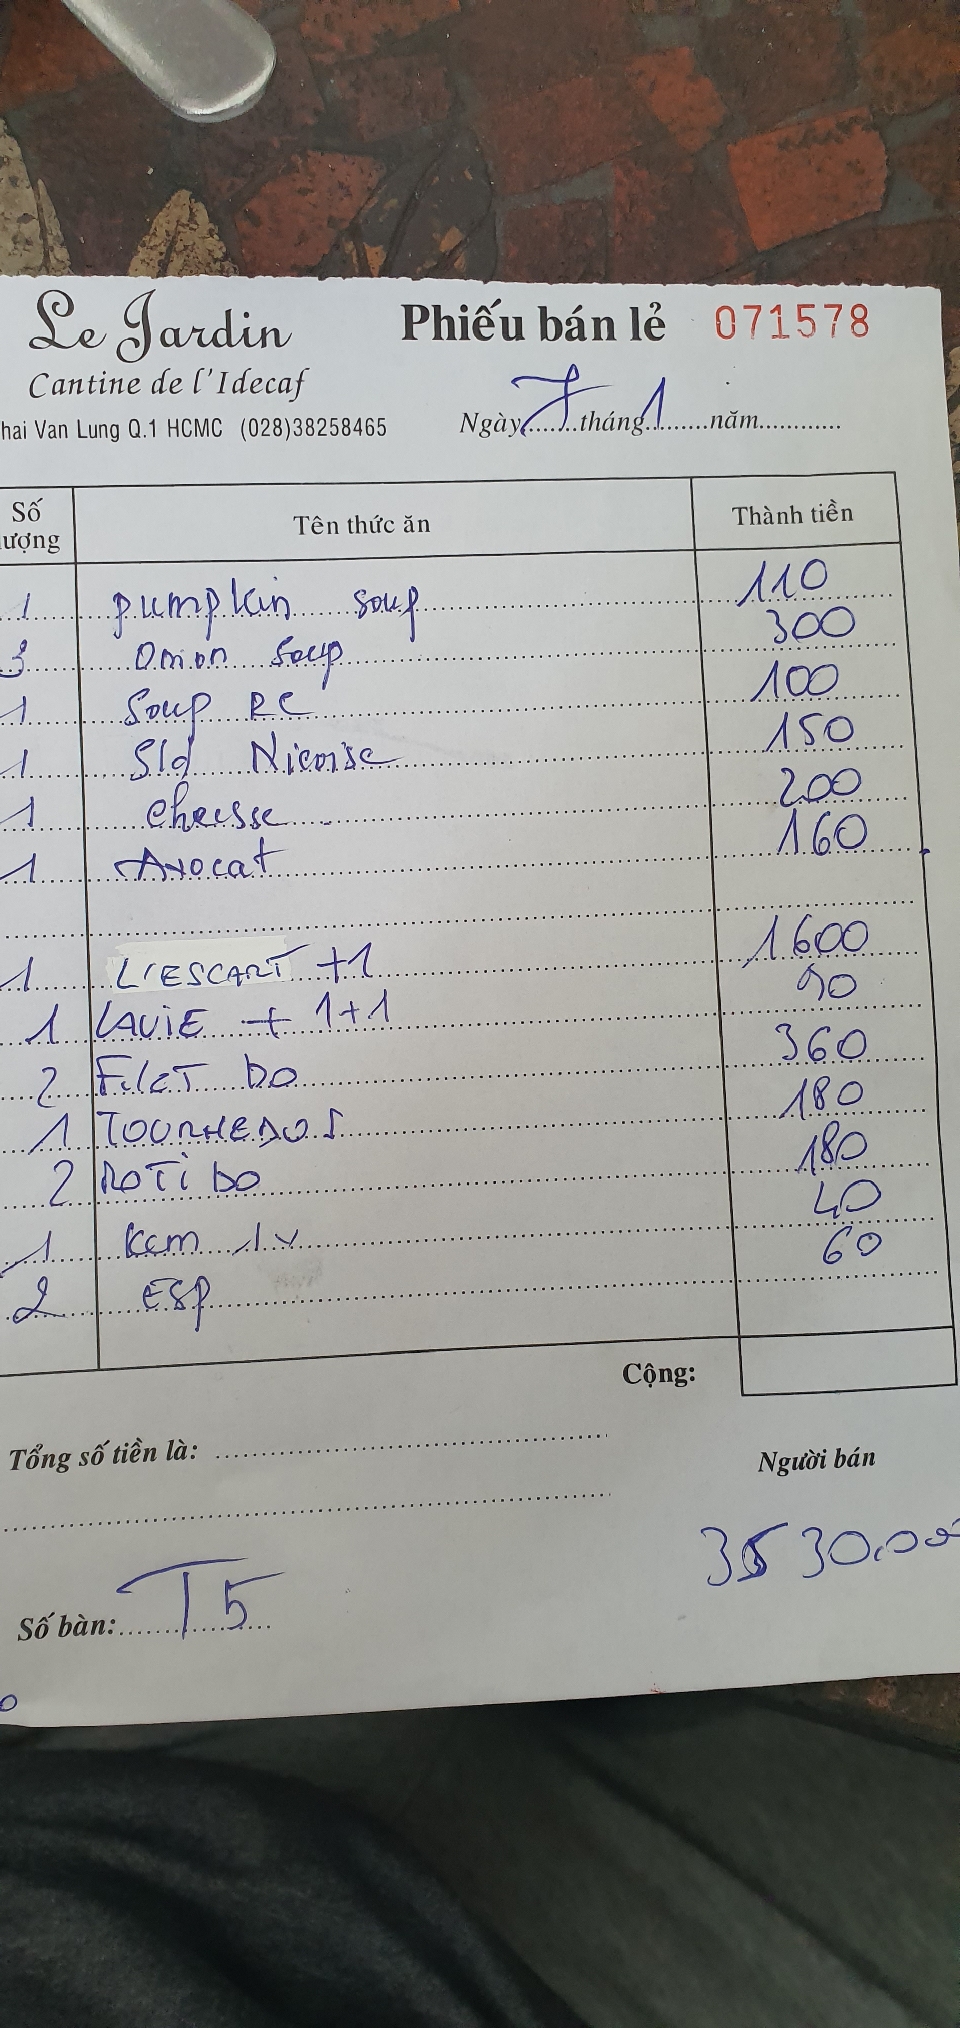 Le Jardin Phiếu bán lẻ 071578
Cantine de l'Idecaf
hai Van Lung Q.1 HCMC (028)38258465 Ngày 7 tháng 1 năm
Số ượng Tên thức ăn Thành tiền
1 pumpkin soup 110
3 Onion Soup 300
1 Soup RC 100
1 Sld Nicoise 150
1 cheesse 200
1 Avocat 160
1 L'ESCART +1 1600
1 LAVIE + 1+1 90
2 FILET DO 360
1 TOURNEDOS 180
2 ROTI DO 180
1 kem 1v 40
2 ESP 60
Cộng:
Tổng số tiền là:
Người bán
3530.00
Số bàn: T5